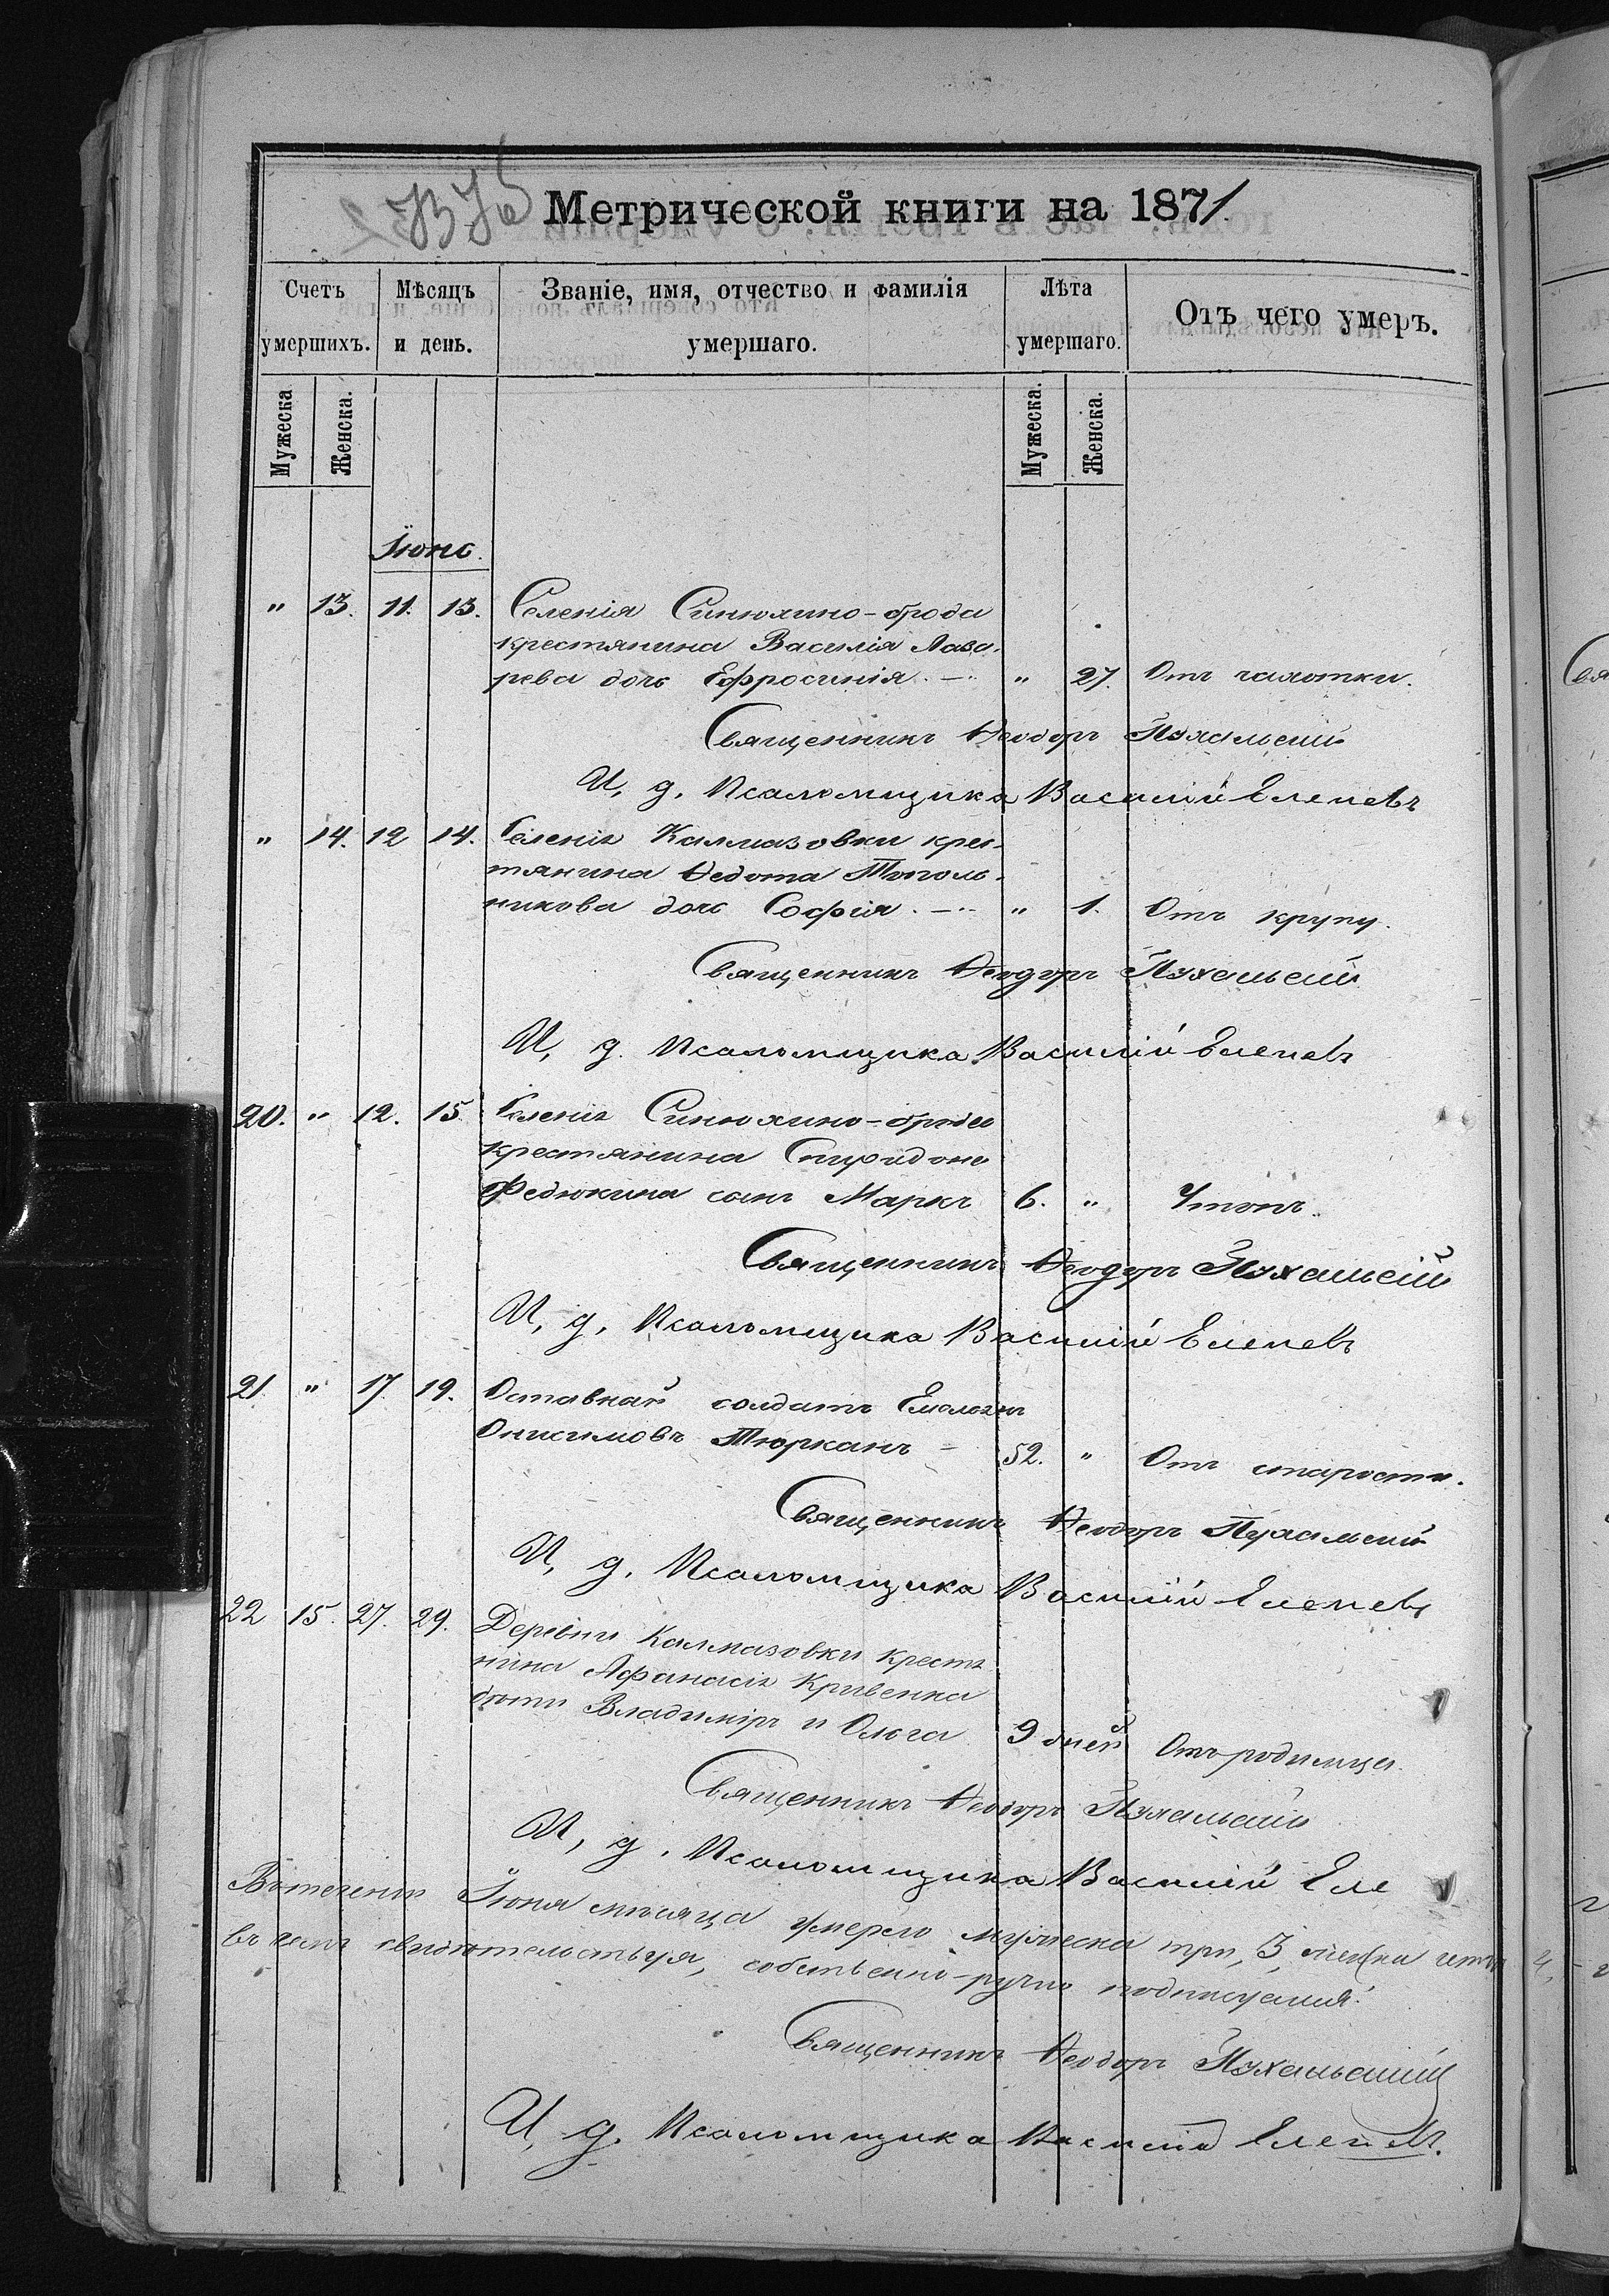 Метрической книги на 1871.
Счетъ умершихъ.
Мѣсяцъ и день.
Званіе, имя, отчество и фамилія умершаго.
Лѣта умершаго.
Отъ чего умеръ.
Мужеска
Женска.
Мужеска.
Женска.
Іюнь.
" 13. 11. 13. Селенія Синюхино-брода
крестянина Василія Лаза-
рева дочь Ефросинія. — " 27. Отъ чахотки.
Священникъ Ѳеодоръ
И, д, Псаломщика Василій
" 14. 12 14. Селенія Калмазовки крес-
тянина Ѳедота Тополь-
никова дочь Софія. — " 1. Отъ крупу.
Священникъ Ѳеодоръ
И, д. Псаломщика Василій
20. " 12. 15. Селенія Синюхино-брода
крестянина Спиридона
Федюкина сынъ Маркъ 6. " Утопъ.
Священникъ Ѳеодоръ
И, д, Псаломщика Василій
21. " 17. 19. Оставной солдатъ
Онисимовъ Тюрканъ — 52. " Отъ старости.
Священникъ Ѳеодоръ
И, д, Псаломщика Василій
22 15. 27. 29. Деревни Калмазовки крестя
нина Афанасія Кривенка
дѣти Владиміръ и Ольга 9 дней Отъ родимца.
Священникъ Ѳеодоръ
И, д. Псаломщика Василій Еле
Втеченіи Іюня мѣсяца умерло мужеска три, 3, женска четы
въ чемъ свидѣтельствуя, собственно-ручно подписуемся:
Священникъ Ѳеодоръ
И, д. Псаломщика Василій